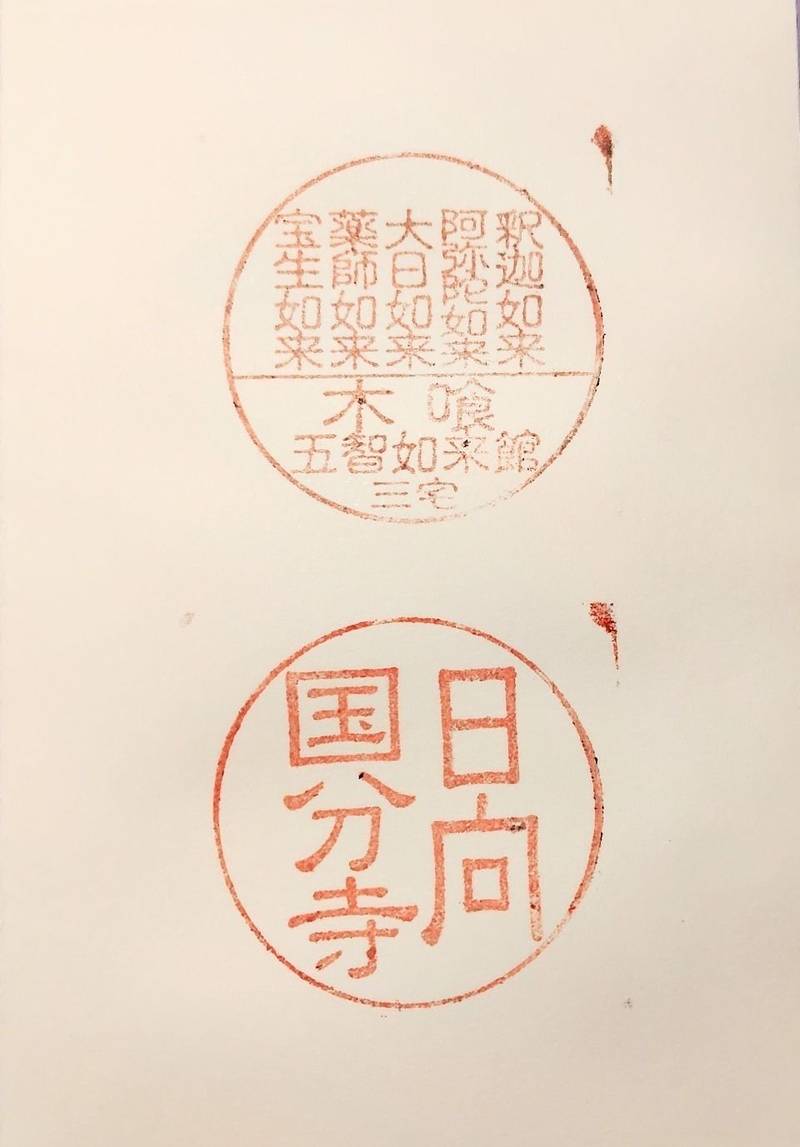 釈迦如来
阿弥陀如来
大日如来
薬師如来
宝生如来
木喰
五智如来館
三宅
日向
国分寺